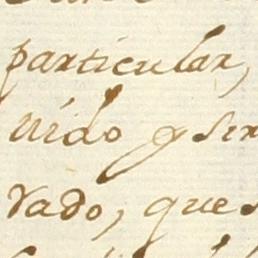 particular,
uido y sin
vado, que